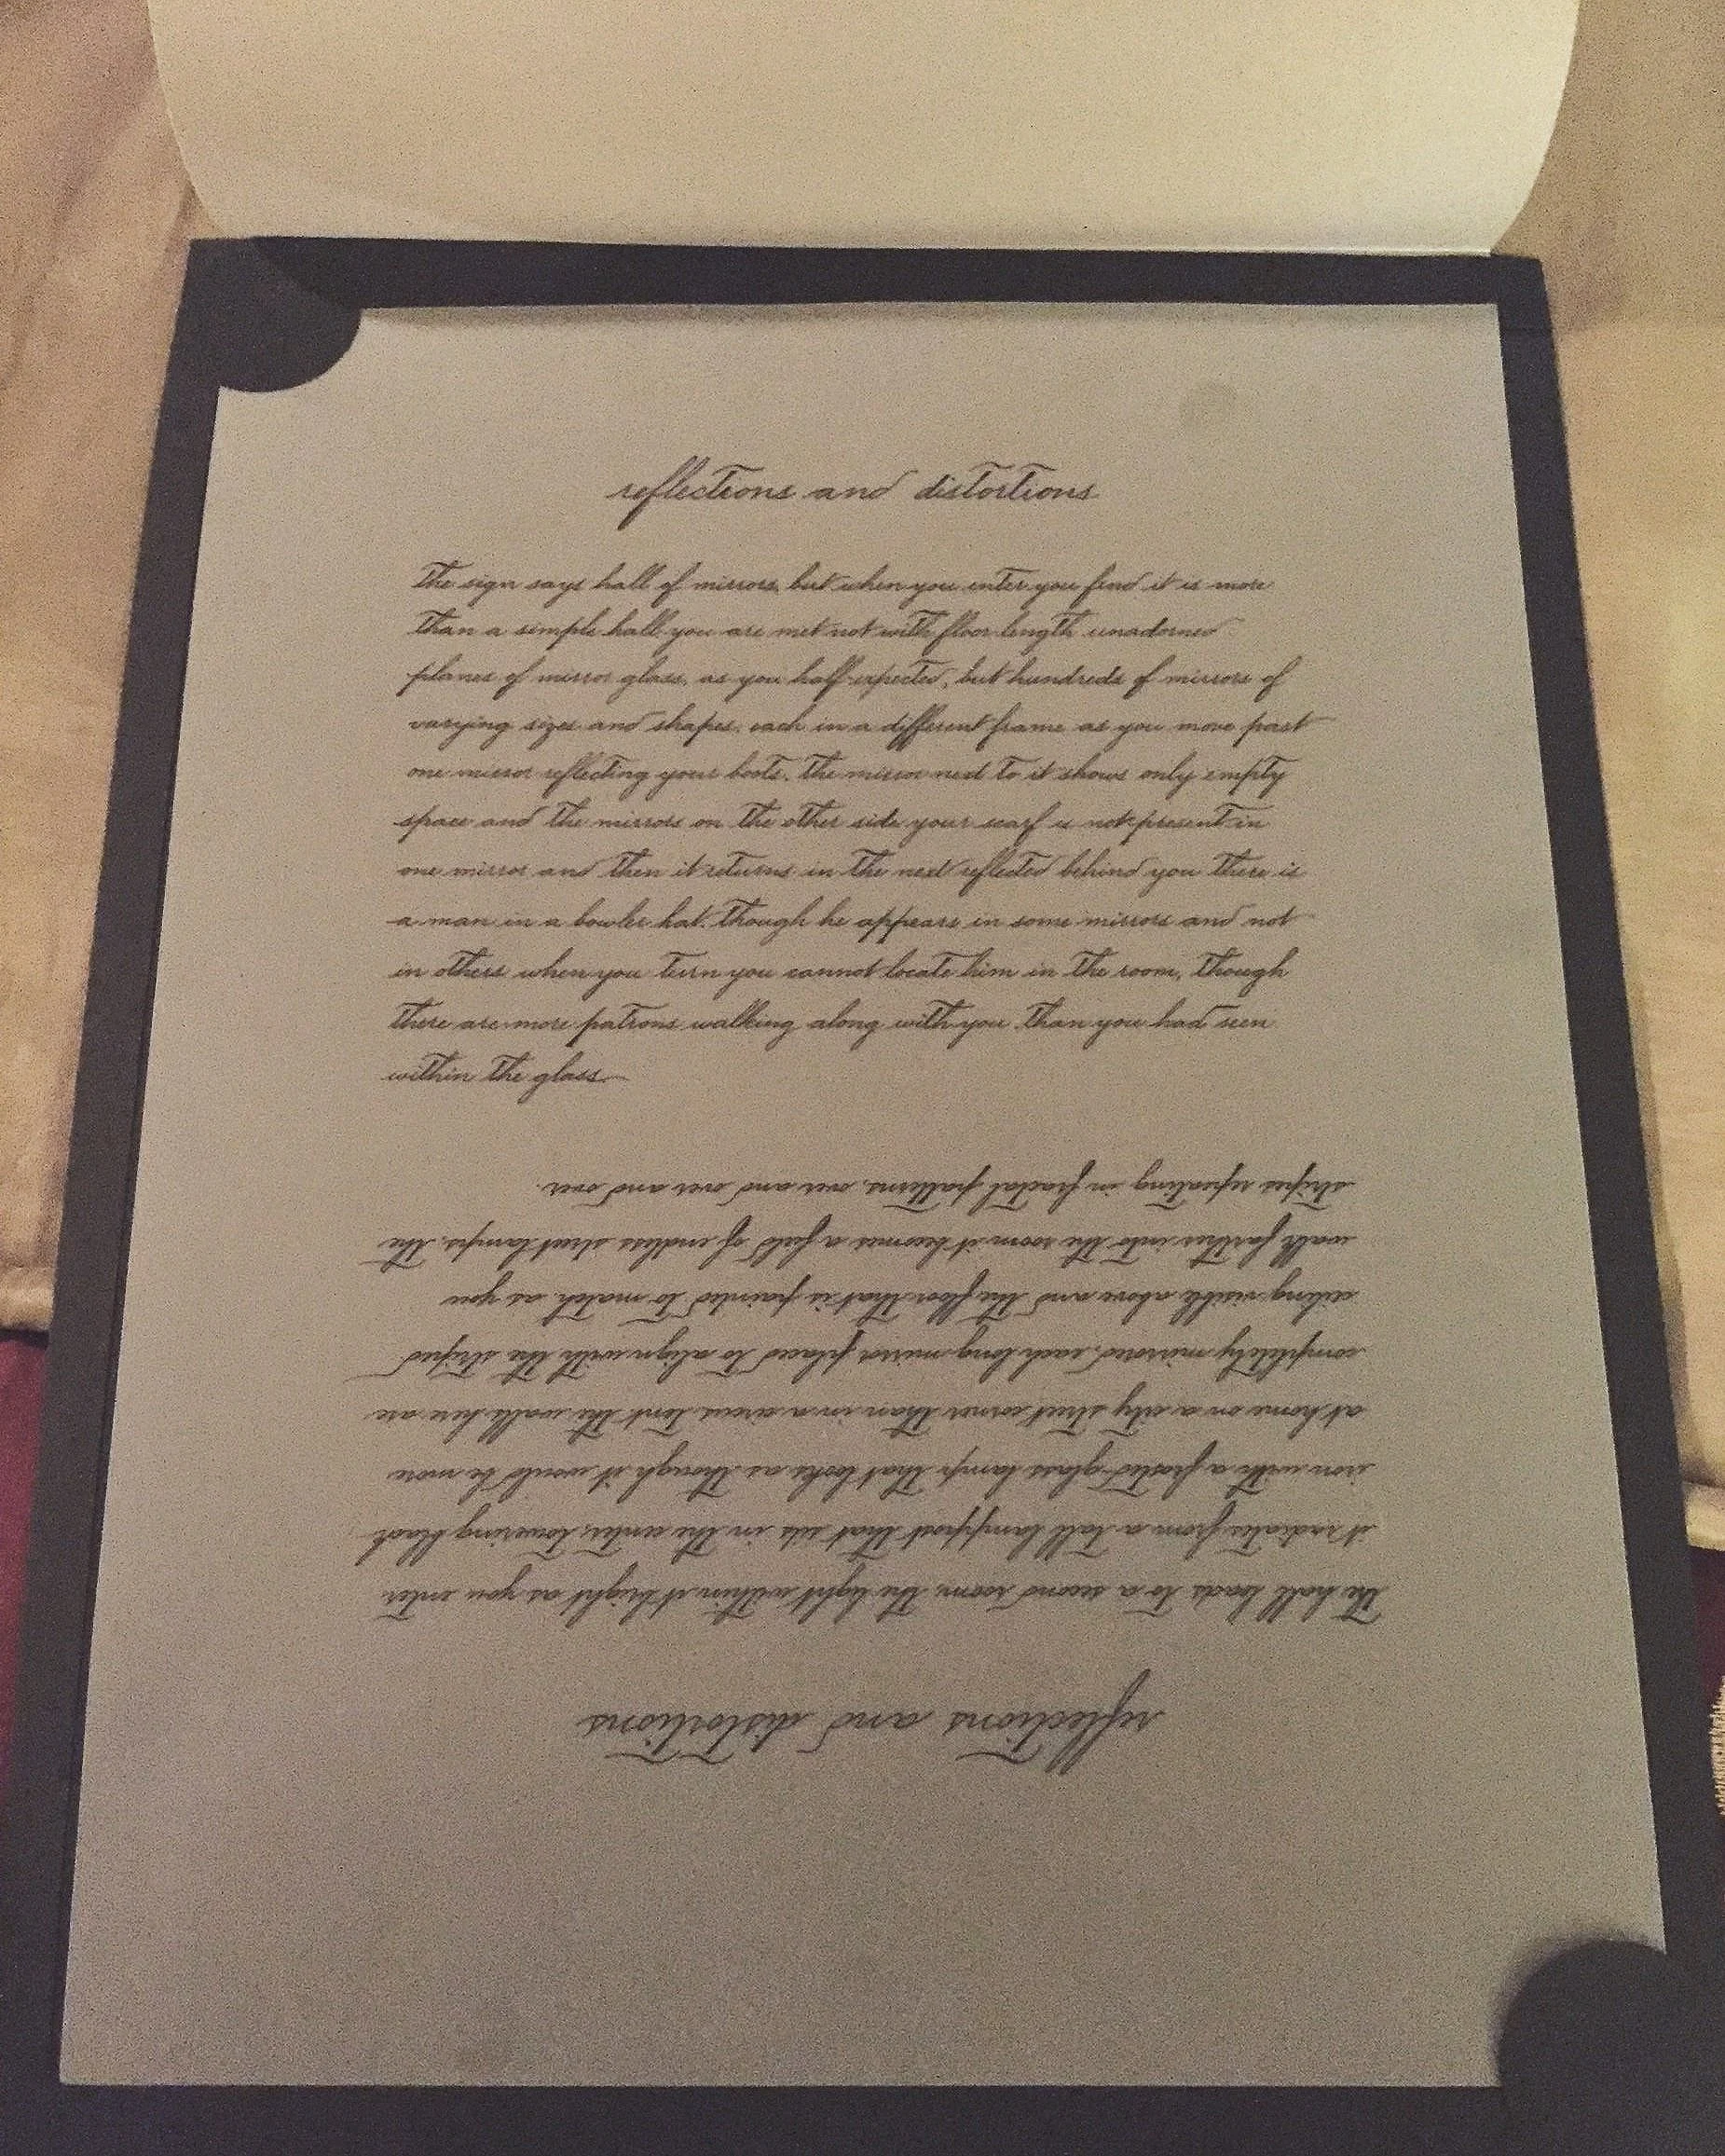 reflections and distortions
The sign says hall of mirrors, but when you enter you find it is more
than a simple hall. you are met not with floor length unadorned
planes of mirror glass, as you half-expected, but hundreds of mirrors of
varying sizes and shapes, each in a different frame. as you move past
one mirror reflecting your boots, the mirror next to it shows only empty
space and the mirrors on the other side. your scarf is not present in
one mirror and then it returns in the next. reflected behind you there is
a man in a bowler hat, though he appears in some mirrors and not
in others. when you turn you cannot locate him in the room, though
there are more patrons walking along with you than you had seen
within the glass.
reflections and distortions
The hall leads to a second room, the light within it bright as you enter
it radiates from a tall lamppost that sits in the center, towering black
iron with a frosted-glass lamp that looks as though it would be more
at home on a city street corner than in a circus tent. the walls here are
completely mirrored, each long mirror placed to align with the striped
ceiling visible above and the floor that is painted to match. as you
walk farther into the room it becomes a field of endless street lamps, the
stripes repeating in fractal patterns, over and over and over.